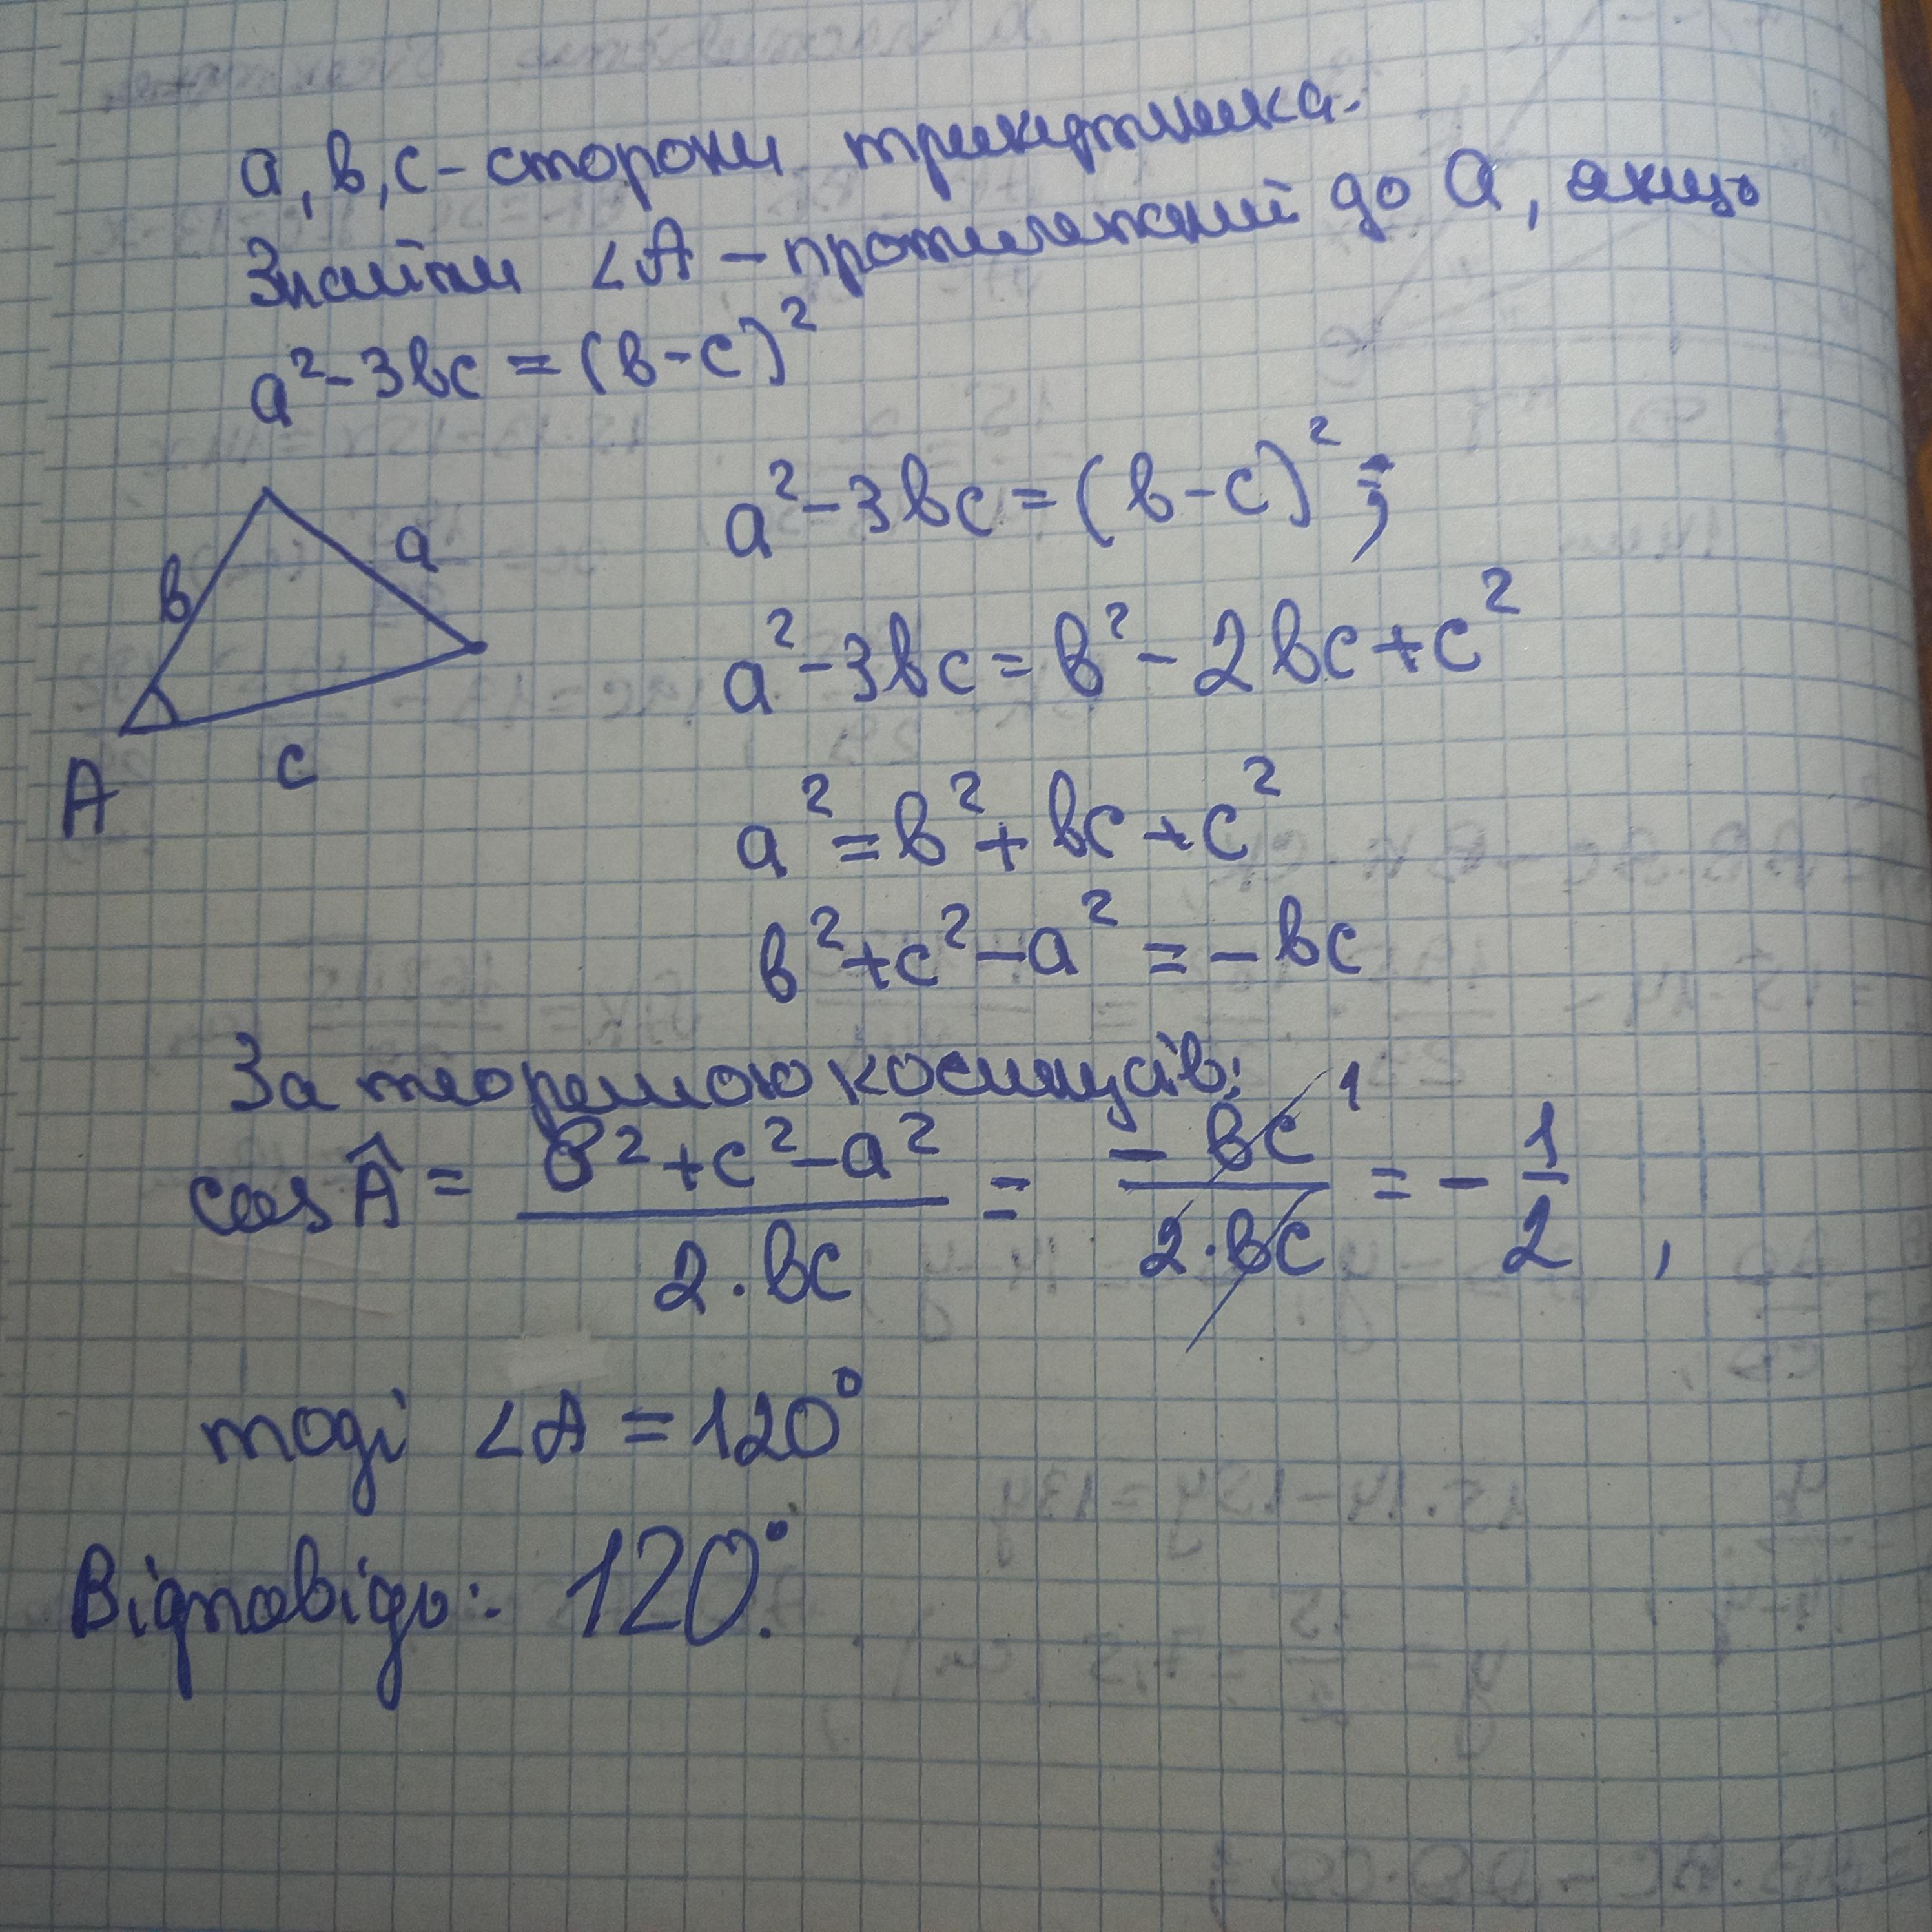 a, b, c - сторони трикутника.
Знайти ∠A - протилежний до a, якщо
a² - 3bc = (b - c)²
a² - 3bc = (b - c)²;
a² - 3bc = b² - 2bc + c²
b
a
c
A
a² = b² + bc + c²
b² + c² - a² = - bc
За теоремою косинусів:
cos Â = (b² + c² - a²) / (2 · bc) = (- bc 1) / (2 · bc) = - 1/2 ,
тоді ∠A = 120°
Відповідь: 120°.